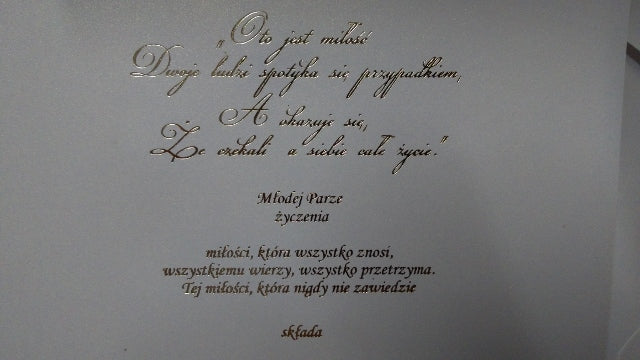 „Oto jest miłość
Dwoje ludzi spotyka się przypadkiem,
A okazuje się,
Że czekali a siebie całe życie."
Młodej Parze
życzenia
miłości, która wszystko znosi,
wszystkiemu wierzy, wszystko przetrzyma.
Tej miłości, która nigdy nie zawiedzie
składa